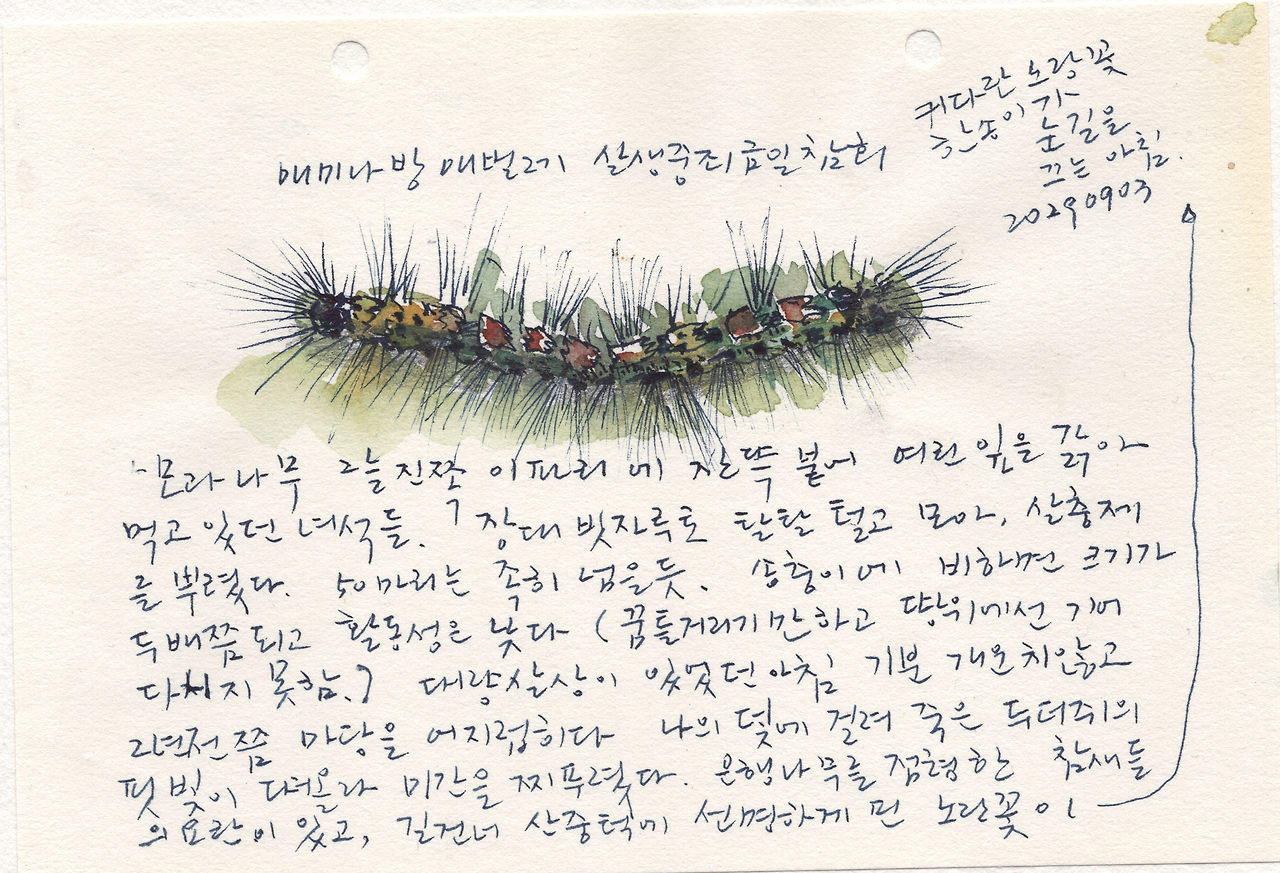 매미나방 애벌레 살생중죄금일참회
모과나무 그늘진쪽 이파리에 잔뜩 붙어 여린 잎을 갉아
먹고 있던 녀석들. 장대 빗자루로 탈탈 털고 모아, 살충제
를 뿌렸다. 50마리는 족히 넘을듯. 송충이에 비하면 크기가
두배쯤 되고 활동성은 낮다 (꿈틀거리기만하고 땅위에선 기어
다니지 못함.) 대량살상이 있었던 아침 기분 개운치않고
2년전쯤 마당을 어지럽히다 나의 덫에 걸려 죽은 두더쥐의
핏빛이 떠올라 미간을 찌푸렸다. 은행나무를 점령한 참새들
의 요란이 있고, 길건너 산중턱에 선명하게 핀 노란꽃이
커다란 노랑꽃
한송이가
눈길을
끄는 아침.
20290903